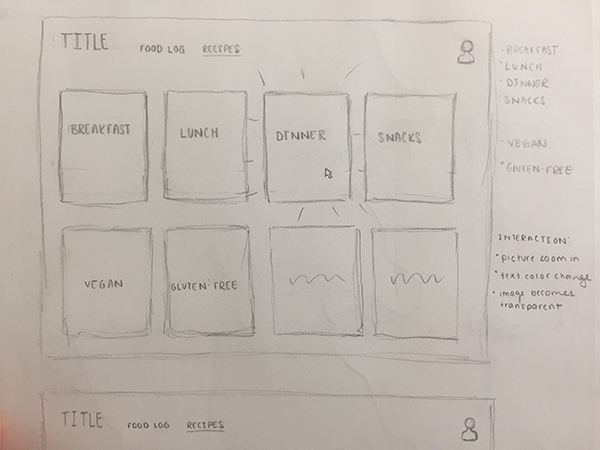 TITLE FOOD LOG RECIPES
BREAKFAST LUNCH DINNER SNACKS
VEGAN GLUTEN-FREE
· BREAKFAST
· LUNCH
· DINNER
· SNACKS
· VEGAN
· GLUTEN-FREE
INTERACTION:
· picture zoom in
· text color change
· image becomes
transparent
TITLE FOOD LOG RECIPES